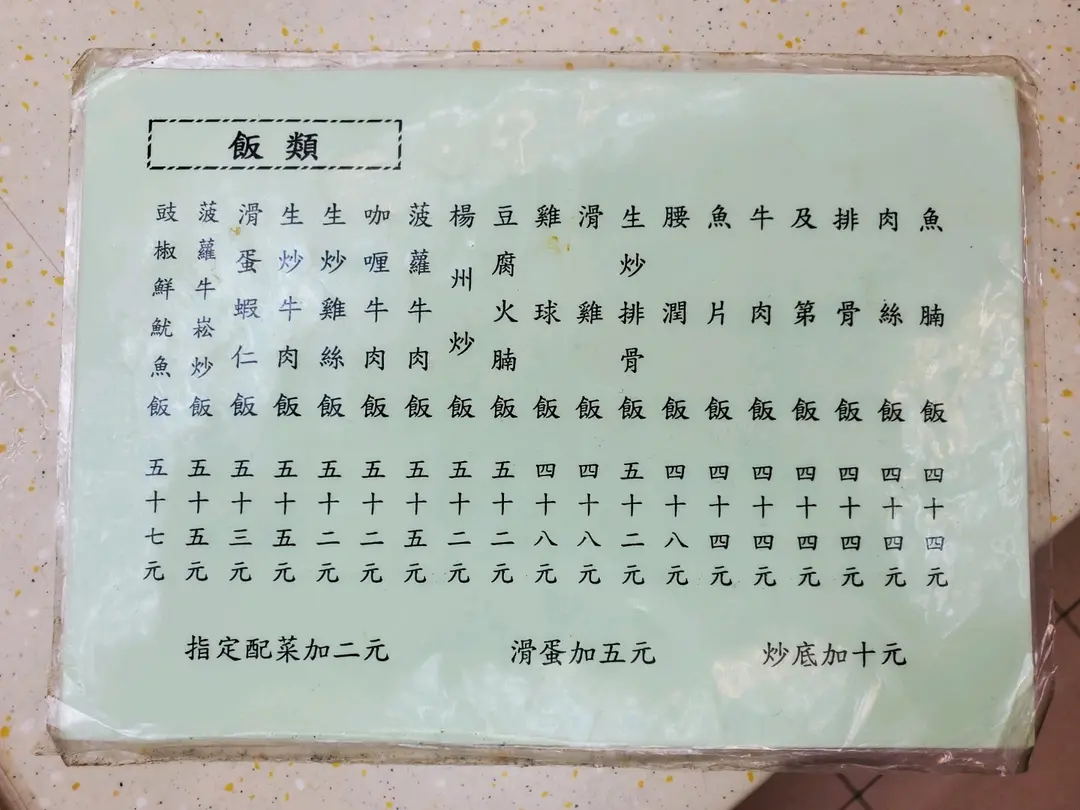 飯類
魚腩飯 四十四元
肉絲飯 四十四元
排骨飯 四十四元
及第飯 四十四元
牛肉飯 四十四元
魚片飯 四十四元
腰潤飯 四十八元
生炒排骨飯 五十二元
滑雞飯 四十八元
雞球飯 四十八元
豆腐火腩飯 五十二元
楊州炒飯 五十二元
菠蘿牛肉飯 五十五元
咖喱牛肉飯 五十二元
生炒雞絲飯 五十二元
生炒牛肉飯 五十五元
滑蛋蝦仁飯 五十三元
菠蘿牛崧炒飯 五十五元
豉椒鮮魷魚飯 五十七元
指定配菜加二元
滑蛋加五元
炒底加十元